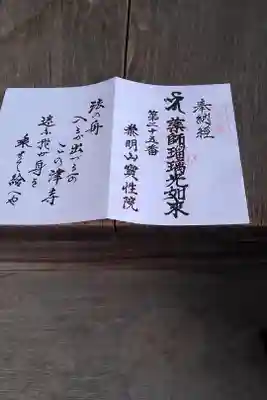 奉納経
薬師瑠璃光如来
第二十五番
宝性院
法の舟
入るか出づるの
この津寺
迷ふ我が身を
乗せて給へや